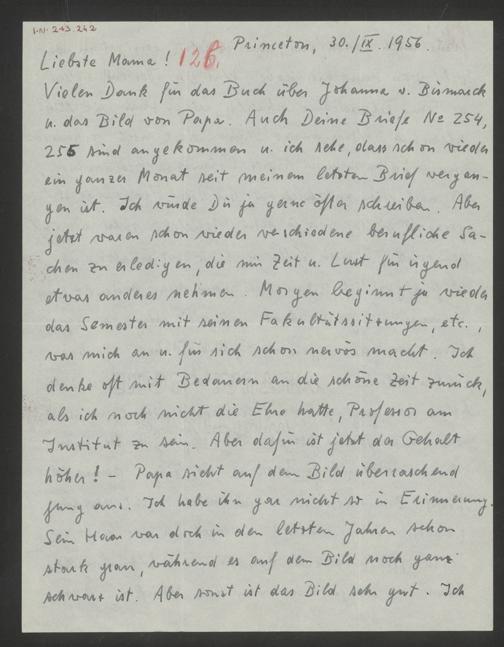 I.N. 243.242
Princeton, 30./IX. 1956.
Liebste Mama! 126.
Vielen Dank für das Buch über Johanna v. Bismarck
u. das Bild von Papa. Auch Deine Briefe No 254,
255 sind angekommen u. ich sehe, dass schon wieder
ein ganzer Monat seit meinem letzten Brief vergan-
gen ist. Ich würde Dir ja gerne öfter schreiben. Aber
jetzt waren schon wieder verschiedene berufliche Sa-
chen zu erledigen, die mir Zeit u. Lust für irgend
etwas anderes nehmen. Morgen beginnt ja wieder
das Semester mit seinen Fakultätssitzungen, etc.,
was mich an u. für sich schon nervös macht. Ich
denke oft mit Bedauern an die schöne Zeit zurück,
als ich noch nicht die Ehre hatte, Professor am
Institut zu sein. Aber dafür ist jetzt das Gehalt
höher! – Papa sieht auf dem Bild überraschend
jung aus. Ich habe ihn gar nicht so in Erinnerung.
Sein Haar war doch in den letzten Jahren schon
stark grau, während es auf dem Bild noch ganz
schwarz ist. Aber sonst ist das Bild sehr gut. Ich